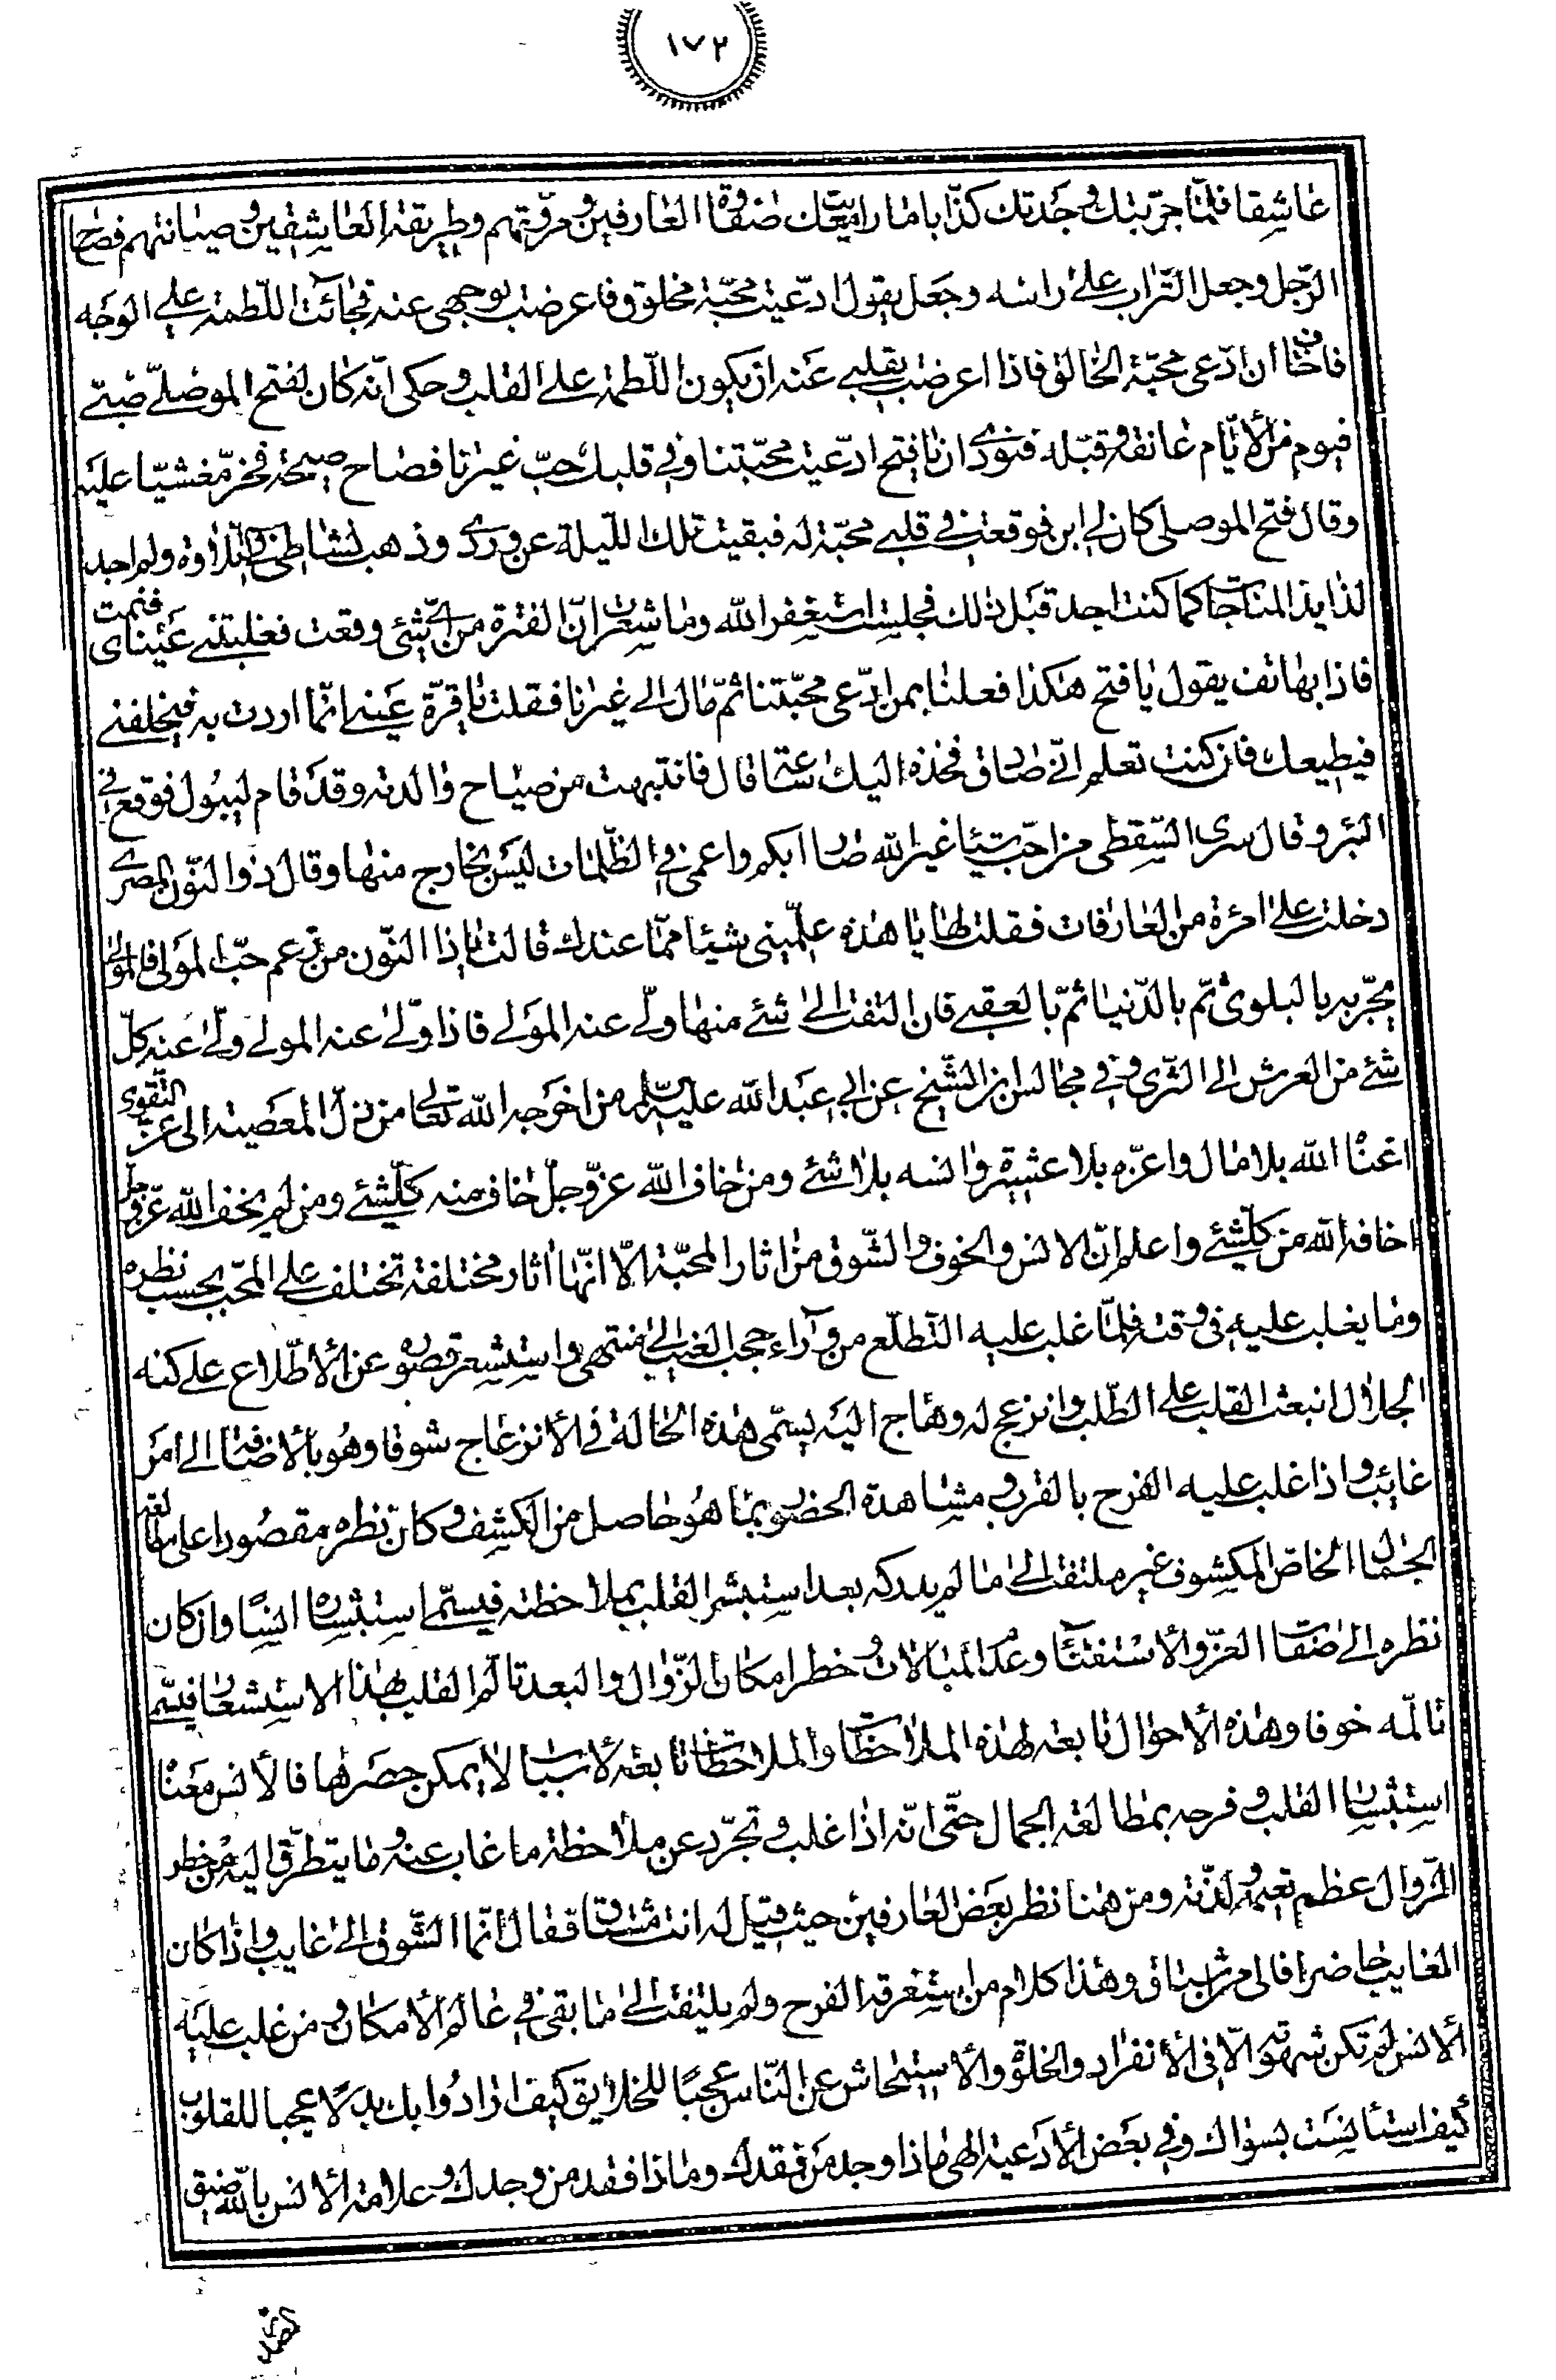 ١٧٢
عاشقا فلمّا جرّبتك وجدتك كذّابا ما رايت معك صفاوة العارفين ومروّتهم وطريقة العاشقين وصيانتهم فصاح
الرّجل وجعل التّراب على راسه وجعل يقول ادّعيت محبّة مخلوق فاعرضت بوجهى عنه فجائت اللّطمة على الوجه
فاخاف ان ادّعى محبّة الخالق فاذا اعرضت بقلبى عنه ان يكون اللّطمة على القلب وحكى انّه كان لفتح الموصلىّ صبىّ
فيوم من الايّام عانقه وقبّله فنودى ان يا فتح ادّعيت محبّتنا وفى قلبك حبّ غيرنا فصاح صيحة فخرّ مغشيّا عليه
وقال فتح الموصلى كان لى ابن فوقعت فى قلبى محبّة له فبقيت تلك اللّيلة عن وردى وذهب نشاطى فى التلاوة ولم اجد
لذايذ المناجات كما كنت اجد قبل ذلك فجلست استغفر الله وما شعرت انّ الفترة من اىّ شئ وقعت فغلبتنى عيناى فنمت
فاذا بهاتف يقول يا فتح هكذا فعلنا بمن ادّعى محبّتنا ثمّ مال الى غيرنا فقلت يا قرّة عينى انّما اردت به فيخلفنى
فيطيعك فان كنت تعلم انّى صادق فخذه اليك ساعتى قال فانتبهت من صياح والدته وقد قام ليبول فوقع فى
البئر وقال سرى السّقطى من احبّ شيئا غير الله صار ابكم واعمى فى الظّلمات ليس بخارج منها وقال ذو النّون المصرى
دخلت على امرئة من العارفات فقلت لها يا هذه علّمينى شيئا ممّا عندك قالت يا ذا النّون من زعم حبّ المولى فالمولى
يجرّبه بالبلوى ثمّ بالدّنيا ثمّ بالعقبى فان التفت الى شئ منها ولّى عنه المولى فاذا ولّى عنه المولى ولّى عنه كلّ
شئ من العرش الى الثرى وفى مجالس ابن الشّيخ عن ابى عبد الله عليه السّلم من اخرجه الله تعالى من ذلّ المعصية الى عزّ التّقوى
اغناه الله بلا مال واعزّه بلا عشيرة وانسه بلا شئ ومن خاف الله عزّ وجلّ خاف منه كلّ شئ ومن لم يخف الله عزّ وجلّ
اخافه الله من كلّ شئ واعلم انّ الانس والخوف والشّوق من اثار المحبّة الّا انّها اثار مختلفة تختلف على المحبّ بحسب نظره
وما يغلب عليه فى وقته فلمّا غلب عليه التّطلّع من وراء حجب الغيب الى منتهى واستشعر قصوره عن الاطّلاع على كنه
الجلال انبعث القلب على الطّلب وانزعج له وهاج اليه يسمّى هذه الحالة فى الانزعاج شوقا وهو بالاضافة الى امر
غائب واذا غلب عليه الفرح بالقرب ومشاهدة الحضور بما هو حاصل من الكشف وكان نظره مقصورا على مطالعة
الجمال الخاصّ المكشوف غير ملتفت الى ما لم يدركه بعد استبشر القلب بملاحظته فيسمّى استبشاره انسًا وان كان
نظره الى صفات العزّ والاستغناء وعدم المبالات وخطر امكان الزّوال والبعد تالّم القلب بهذا الاستشعار فيسمّى
تالّمه خوفا وهذه الاحوال تابعة لهذه الملاحظات والملاحظات تابعة لاسباب لا يمكن حصرها فالانس معناه
استبشار القلب وفرحه بمطالعة الجمال حتّى انّه اذا غلب وتجرّد عن ملاحظة ما غاب عنه وما يتطرّق اليه من خطر
الزّوال عظم نعيمه ولذّته ومن هنا نظر بعض العارفين حيث قيل له انت مشتاق فقال انّما الشّوق الى غايب واذا كان
الغايب حاضرا فالى من يشتاق وهذا كلام من استغرقه الفرح ولم يلتفت الى ما بقى فى عالم الامكان ومن غلب عليه
الانس لم تكن شهوته الّا فى الانفراد والخلوة والاستيحاش عن النّاس عجبًا للخلايق كيف ارادوا بك بدلًا عجبا للقلوب
كيف استأنست بسواك وفى بعض الادعية الهى ماذا وجد من فقدك وماذا فقد من وجدك وعلامة الانس بالله ضيق